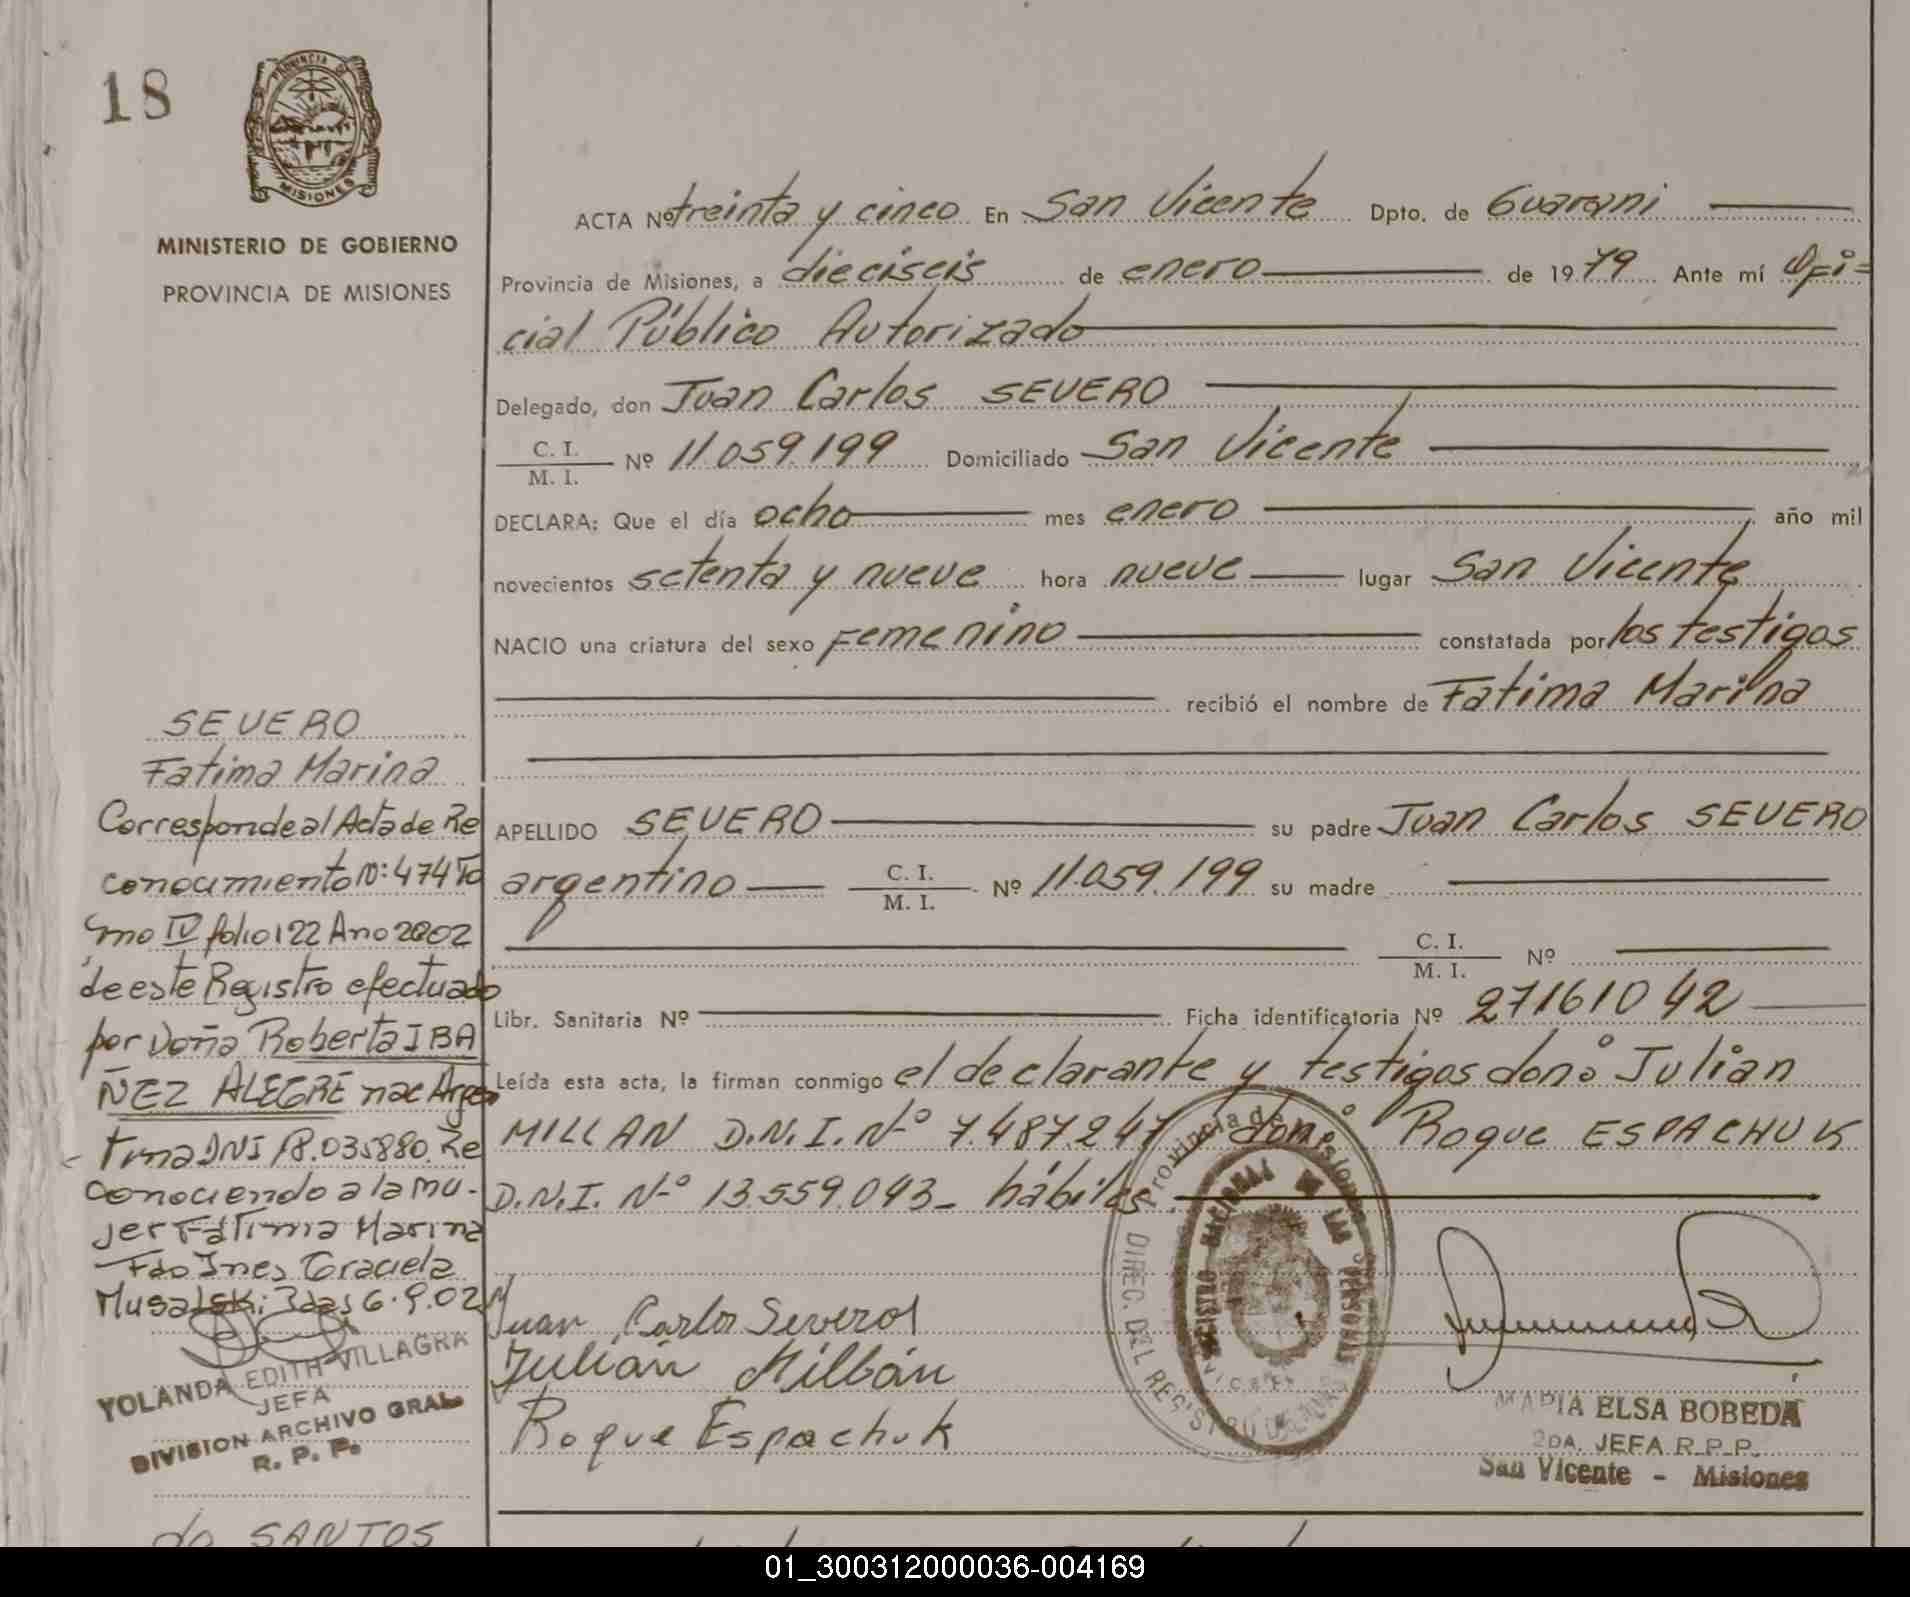 18
PROVINCIA DE
MISIONES
MINISTERIO DE GOBIERNO
PROVINCIA DE MISIONES
SEVERO
Fatima Marina
Corresponde al Acta de Re
conocimiento Nº: 474 To
mo IV folio 122 Año 2002
de este Registro efectuado
por Doña Roberta IBA
ÑEZ ALEGRE nac Argen
tina DNI 18.035880. Re
conociendo a la mu-
jer Fátima Marina
Fdo Ines Graciela
Musalski Pdas 6.9.02
YOLANDA EDITH VILLAGRA
JEFA
DIVISION ARCHIVO GRAL
R. P. P.
do SANTOS
ACTA Nº treinta y cinco En San Vicente Dpto. de Guarani
Provincia de Misiones, a dieciseis de enero de 1979 Ante mí Ofi=
cial Público Autorizado
Delegado, don Juan Carlos SEVERO
C. I.
M. I. Nº 11.059.199 Domiciliado San Vicente
DECLARA: Que el día ocho mes enero año mil
novecientos setenta y nueve hora nueve lugar San Vicente
NACIO una criatura del sexo Femenino constatada por los testigos
recibió el nombre de Fatima Marina
APELLIDO SEVERO su padre Juan Carlos SEVERO
argentino C. I.
M. I. Nº 11.059.199 su madre
C. I.
M. I. Nº
Libr. Sanitaria Nº Ficha identificatoria Nº 27161042
Leída esta acta, la firman conmigo el declarante y testigos don: Julian
MILLAN D.N.I. Nº 7.487.247 y don: Roque ESPACHUK
D.N.I. Nº 13.559.093_ hábiles.
Juan Carlos Severo
Julián Millán
Roque Espachuk
Provincia de Misiones
DIREC. DEL REGISTRO DE LAS
REGISTRO NACIONAL DE LAS PERSONAS
MARIA ELSA BOBEDA
2DA. JEFA R.P.P.
San Vicente - Misiones
01_300312000036-004169